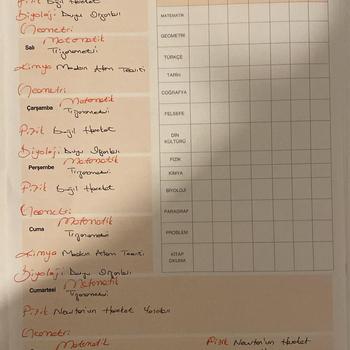 Fizik Bağıl Hareket
Biyoloji Duyu Organları
Geometri
Salı Matematik
Trigonometri
Kimya Modern Atom Teorisi
Geometri
Çarşamba Matematik
Trigonometri
Fizik Bağıl Hareket
Biyoloji Duyu Organları
Perşembe Matematik
Trigonometri
Fizik Bağıl Hareket
Geometri
Cuma Matematik
Trigonometri
Kimya Modern Atom Teorisi
Biyoloji Duyu Organları
Cumartesi Matematik
Trigonometri
Fizik Newton'un Hareket Yasaları
Geometri
Matematik
Fizik Newton'un Hareket
MATEMATİK
GEOMETRİ
TÜRKÇE
TARİH
COĞRAFYA
FELSEFE
DİN
KÜLTÜRÜ
FİZİK
KİMYA
BİYOLOJİ
PARAGRAF
PROBLEM
KİTAP
OKUMA